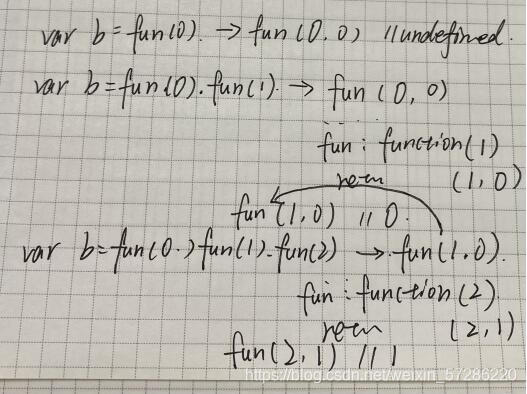 var b=fun(0). → fun(0,0) //undefined.
var b=fun(0).fun(1). → fun(0,0)
fun: function(1)
(1,0)
fun(1,0) //0.
var b=fun(0.)fun(1).fun(2) → fun(1,0).
fun: function(2)
(2,1)
fun(2,1) //1
https://blog.csdn.net/weixin_57286220